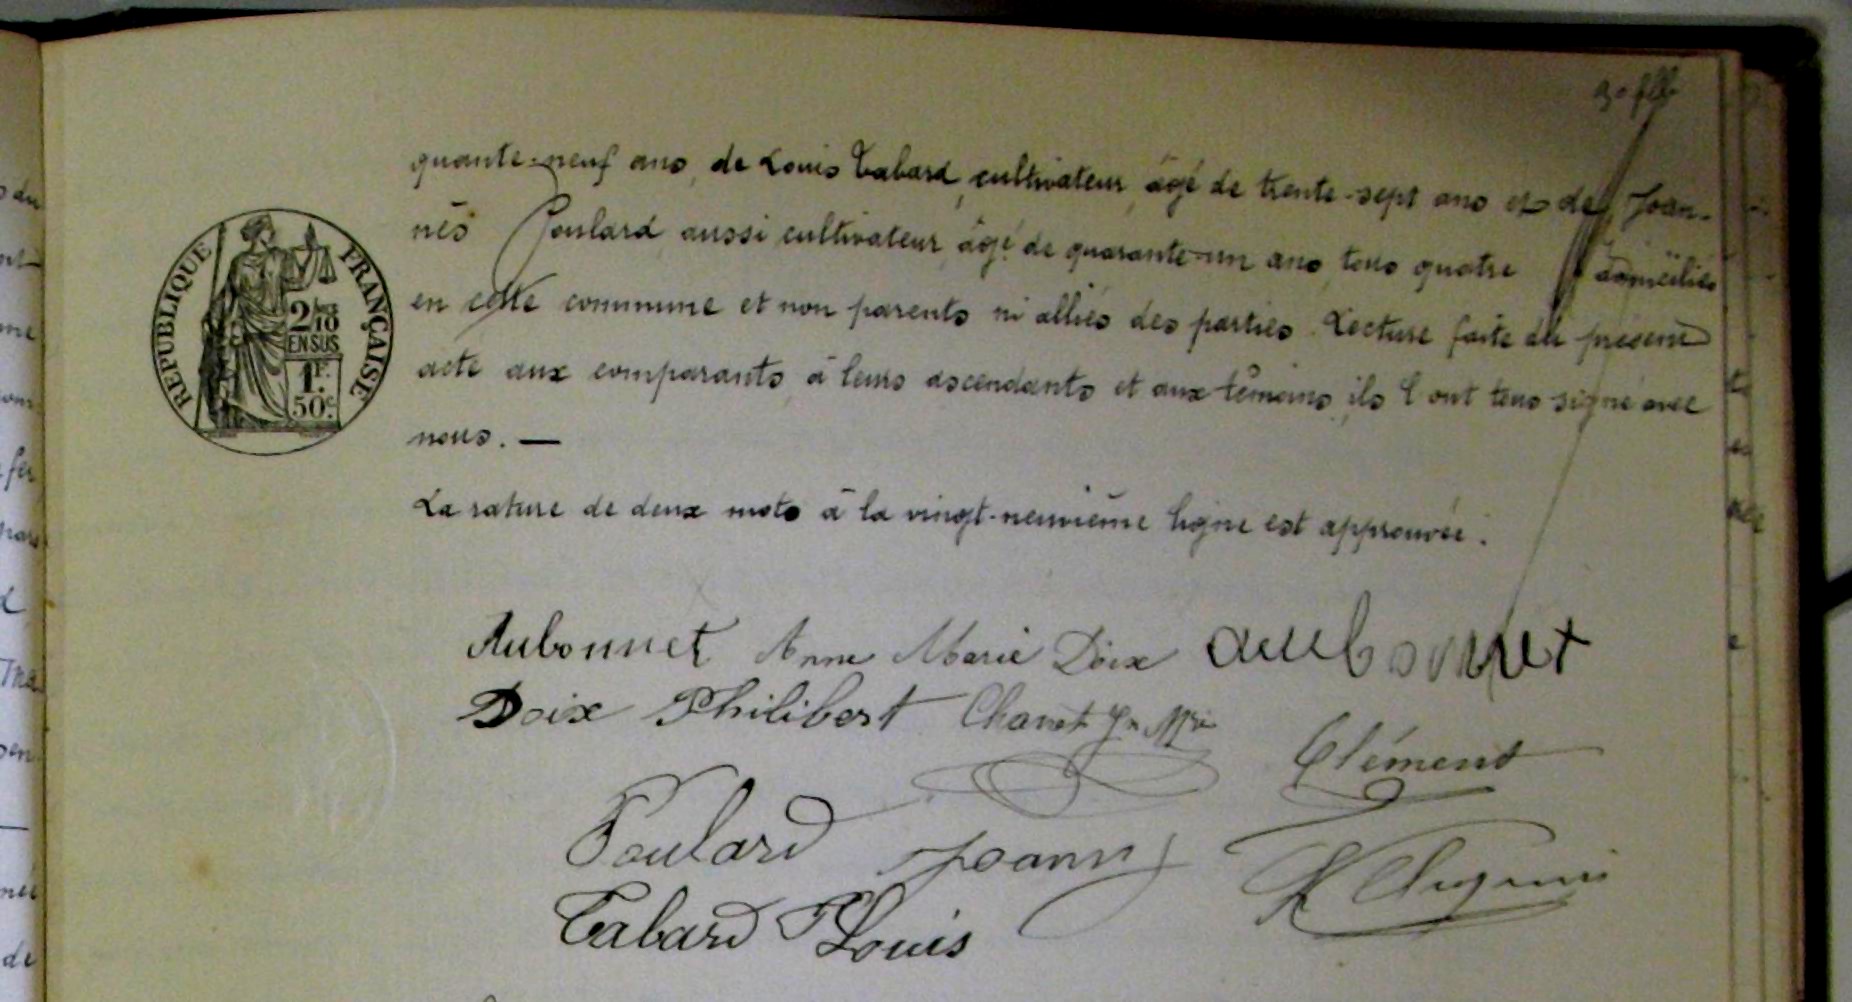 RÉPUBLIQUE FRANÇAISE
2/10
EN SUS
1F.
50c.
quante-neuf ans, de Louis Tabard, cultivateur, âgé de trente-sept ans et de Joan-
nès Poulard aussi cultivateur, âgé de quarante-un ans, tous quatre domiciliés
en cette commune et non parents ni alliés des parties. Lecture faite du présent
acte aux comparants, à leurs ascendants et aux témoins, ils l'ont tous signé avec
nous. —
La rature de deux mots à la vingt-neuvième ligne est approuvée.
Aubonnet Anne Marie Doix aubonnet
Doix Philibert Chanet Jn Mie Clément
Poulard Joanny
Tabard Louis